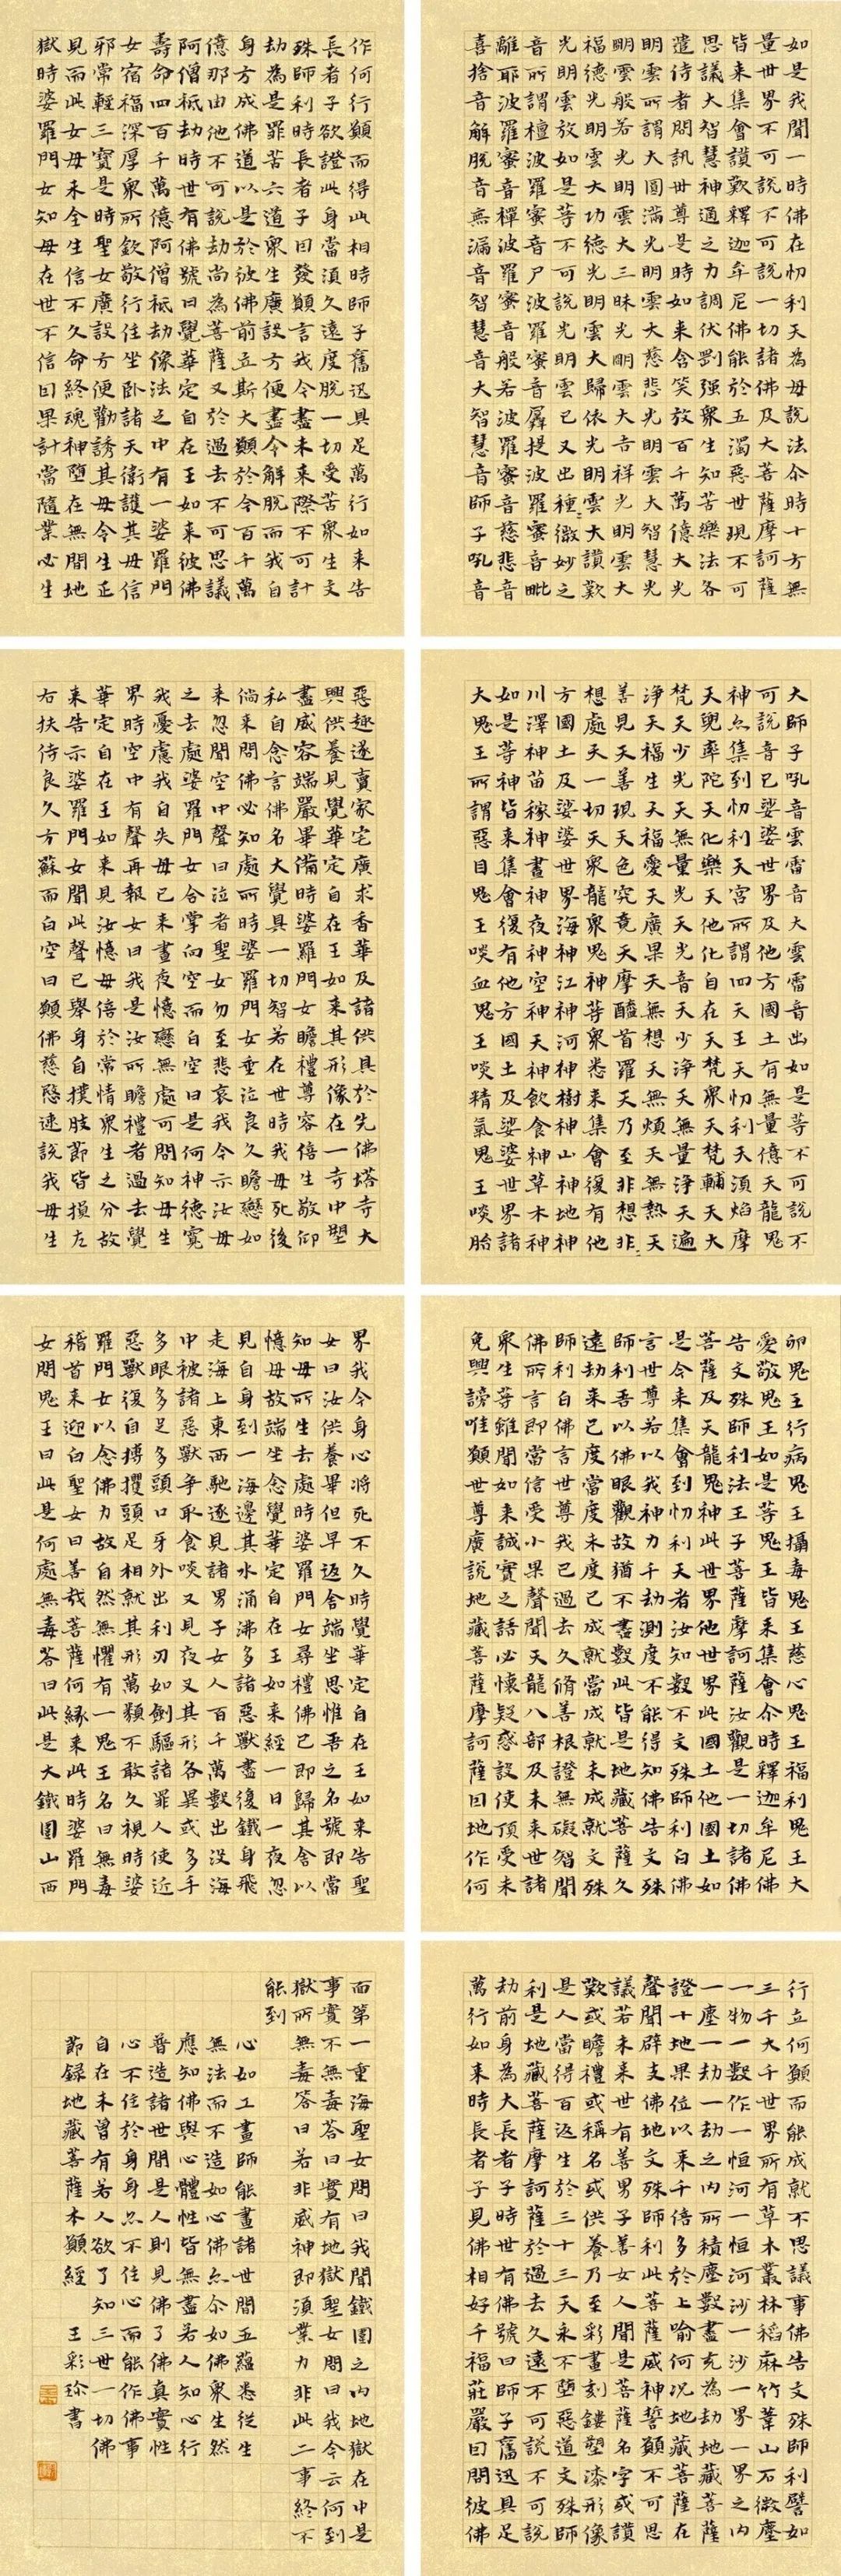 如是我聞一時佛在忉利天為母說法尒時十方無
量世界不可說不可說一切諸佛及大菩薩摩訶薩
皆来集會讚歎釋迦牟尼佛能於五濁惡世現不可
思議大智慧神通之力調伏剛强衆生知苦樂法各
遣侍者問訊世尊是時如来含笑放百千萬億大光
明雲所謂大圓滿光明雲大慈悲光明雲大智慧光
明雲般若光明雲大三昧光明雲大吉祥光明雲大
福德光明雲大功德光明雲大歸依光明雲大讚歎
光明雲放如是等不可說光明雲已又出種〻微妙之
音所謂檀波羅蜜音尸波羅蜜音羼提波羅蜜音毗
離耶波羅蜜音禪波羅蜜音般若波羅蜜音慈悲音
喜捨音解脫音無漏音智慧音大智慧音師子吼音
大師子吼音雲雷音大雲雷音出如是等不可說不
可說音已娑婆世界及他方國土有無量億天龍鬼
神亦集到忉利天宮所謂四天王天忉利天須焰摩
天兜率陀天化樂天他化自在天梵衆天梵輔天大
梵天少光天無量光天光音天少淨天無量淨天遍
淨天福生天福愛天廣果天無想天無煩天無熱天
善見天善現天色究竟天摩醯首羅天乃至非想非
想處天一切天衆龍衆鬼神等衆悉来集會復有他
方國土及娑婆世界海神江神河神樹神山神地神
川澤神苗稼神晝神夜神空神天神飲食神草木神
如是等神皆来集會復有他方國土及娑婆世界諸
大鬼王所謂惡目鬼王啖血鬼王啖精氣鬼王啖胎
卵鬼王行病鬼王攝毒鬼王慈心鬼王福利鬼王大
愛敬鬼王如是等鬼王皆来集會尒時釋迦牟尼佛
告文殊師利法王子菩薩摩訶薩汝觀是一切諸佛
菩薩及天龍鬼神此世界他世界此國土他國土如
是今来集會到忉利天者汝知數不文殊師利白佛
言世尊若以我神力千劫測度不能得知佛告文殊
師利吾以佛眼觀故猶不盡數此皆是地藏菩薩久
遠劫来已度當度未度已成就當成就未成就文殊
師利白佛言世尊我已過去久脩善根證無礙智聞
佛所言即當信受小果聲聞天龍八部及未来世諸
衆生等雖聞如来誠實之語必懷疑惑設使頂受未
免興謗唯願世尊廣說地藏菩薩摩訶薩因地作何
行立何願而能成就不思議事佛告文殊師利譬如
三千大千世界所有草木叢林稻麻竹葦山石微塵
一物一數作一恒河一恒河沙一沙一界一界之内
一塵一劫一劫之内所積塵數盡充為劫地藏菩薩
證十地果位以来千倍多於上喻何况地藏菩薩在
聲聞辟支佛地文殊師利此菩薩威神誓願不可思
議若未来世有善男子善女人聞是菩薩名字或讚
歎或瞻禮或稱名或供養乃至彩畫刻鏤塑漆形像
是人當得百返生於三十三天永不墮惡道文殊師
利是地藏菩薩摩訶薩於過去久遠不可說不可說
劫前身為大長者子時世有佛號曰師子奮迅具足
萬行如来時長者子見佛相好千福莊嚴因問彼佛
作何行願而得此相時師子奮迅具足萬行如来告
長者子欲證此身當須久遠度脫一切受苦衆生文
殊師利時長者子因發願言我今盡未来際不可計
劫為是罪苦六道衆生廣設方便盡令解脫而我自
身方成佛道以是於彼佛前立斯大願於今百千萬
億那由他不可說劫尚為菩薩又於過去不可思議
阿僧祇劫時世有佛號曰覺華定自在王如来彼佛
壽命四百千萬億阿僧祇劫像法之中有一婆羅門
女宿福深厚衆所欽敬行住坐卧諸天衛護其母信
邪常輕三寶是時聖女廣設方便勸誘其母令生正
見而此女母未全生信不久命終魂神墮在無間地
獄時婆羅門女知母在世不信因果計當隨業必生
惡趣遂賣家宅廣求香華及諸供具於先佛塔寺大
興供養見覺華定自在王如来其形像在一寺中塑
畫威容端嚴畢備時婆羅門女瞻禮尊容倍生敬仰
私自念言佛名大覺具一切智若在世時我母死後
倘来問佛必知處所時婆羅門女垂泣良久瞻戀如
来忽聞空中聲曰泣者聖女勿至悲哀我今示汝母
之去處婆羅門女合掌向空而白空曰是何神德寬
我憂慮我自失母已来晝夜憶戀無處可問知母生
界時空中有聲再報女曰我是汝所瞻禮者過去覺
華定自在王如来見汝憶母倍於常情衆生之分故
来告示婆羅門女聞此聲已舉身自撲肢節皆損左
右扶侍良久方蘇而白空曰願佛慈愍速說我母生
界我今身心将死不久時覺華定自在王如来告聖
女曰汝供養畢但早返舍端坐思惟吾之名號即當
知母所生去處時婆羅門女尋禮佛已即歸其舍以
憶母故端坐念覺華定自在王如来經一日一夜忽
見自身到一海邊其水涌沸多諸惡獸盡復鐵身飛
走海上東西馳逐見諸男子女人百千萬數出沒海
中被諸惡獸争取食啖又見夜叉其形各異或多手
多眼多足多頭口牙外出利刃如劍驅諸罪人使近
惡獸復自搏攫頭足相就其形萬類不敢久視時婆
羅門女以念佛力故自然無懼有一鬼王名曰無毒
稽首来迎白聖女曰善哉菩薩何緣来此時婆羅門
女問鬼王曰此是何處無毒答曰此是大鐵圍山西
面第一重海聖女問曰我聞鐵圍之内地獄在中是
事實不無毒答曰實有地獄聖女問曰我今云何到
獄所無毒答曰若非威神即須業力非此二事終不
能到
心如工畫師能畫諸世間五蘊悉從生
無法而不造如心佛亦尒如佛衆生然
應知佛與心體性皆無盡若人知心行
普造諸世間是人則見佛了佛真實性
心不住於身身亦不住心而能作佛事
自在未曾有若人欲了知三世一切佛
節録地藏菩薩本願經 王彩珍書